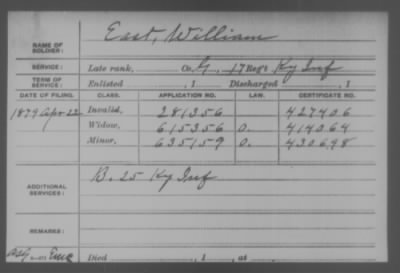 East, William
NAME OF
SOLDIER:
SERVICE: Late rank, Co. G, 17 Reg't Ky Inf
TERM OF
SERVICE: Enlisted , 1 Discharged , 1
DATE OF FILING. CLASS. APPLICATION NO. LAW. CERTIFICATE NO.
1879 Apr 22 Invalid, 281356 427406
Widow, 615356 O. 414064
Minor, 635159 O. 430698
B. 25 Ky Inf
ADDITIONAL
SERVICES:
REMARKS:
Died , 1 , at